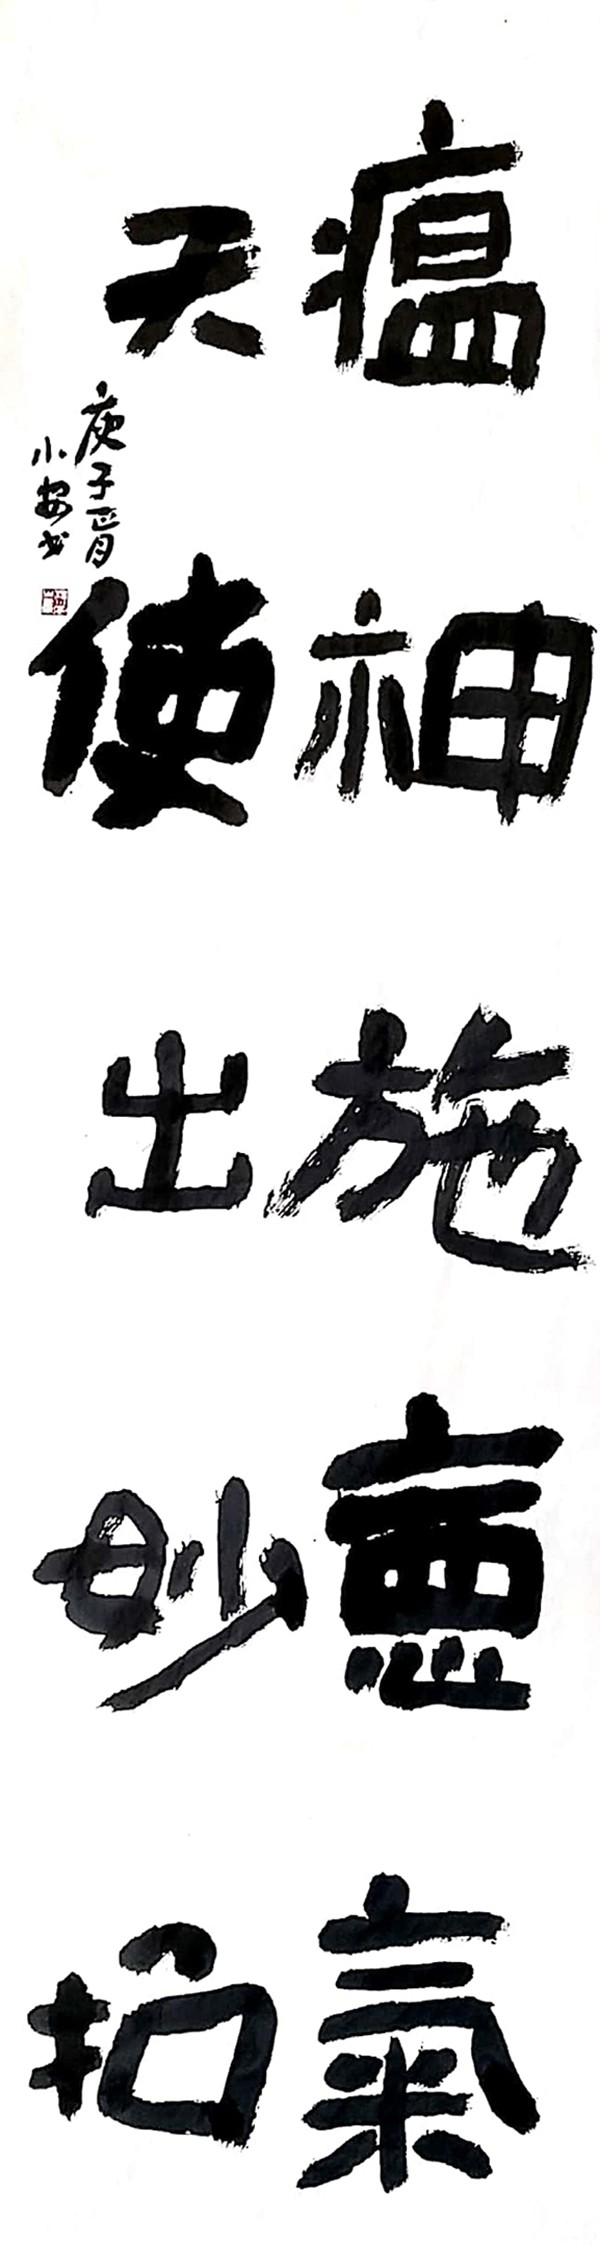 瘟神施惪氣
天使出妙招
庚子正月
小安书